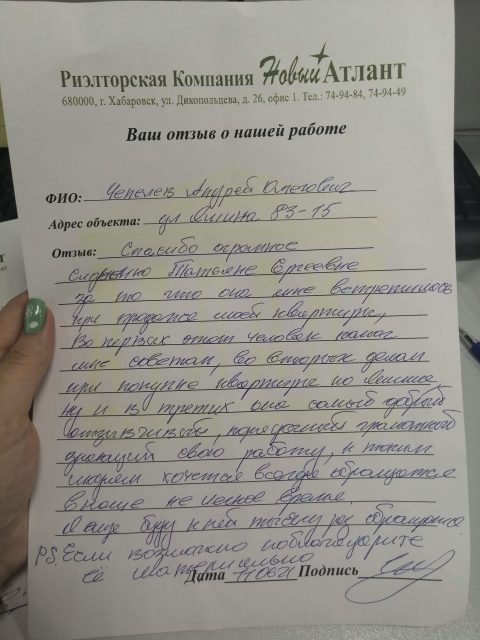 Риэлторская Компания Новый Атлант
680000, г. Хабаровск, ул. Дикопольцева, д. 26, офис 1. Тел.: 74-94-84, 74-94-49
Ваш отзыв о нашей работе
ФИО: Чепелев Андрей Олегович
Адрес объекта: ул 83-15
Отзыв: Спасибо огромное
Татьяне Сергеевне
за то что она мне встретилась
при продаже моей квартиры,
Во первых этот человек помог
мне советом, во вторых делом
при покупке квартиры по
ну и в третих она самый добрый
отзывчивый, порядочный грамотный
знающий свою работу, к таким
людям хочется всегда обращатся
в наше не легкое время.
Я еще буду к ней тысячу раз обращатся
P.S. Если возможно поблагодарите
её материально
Дата 110621 Подпись